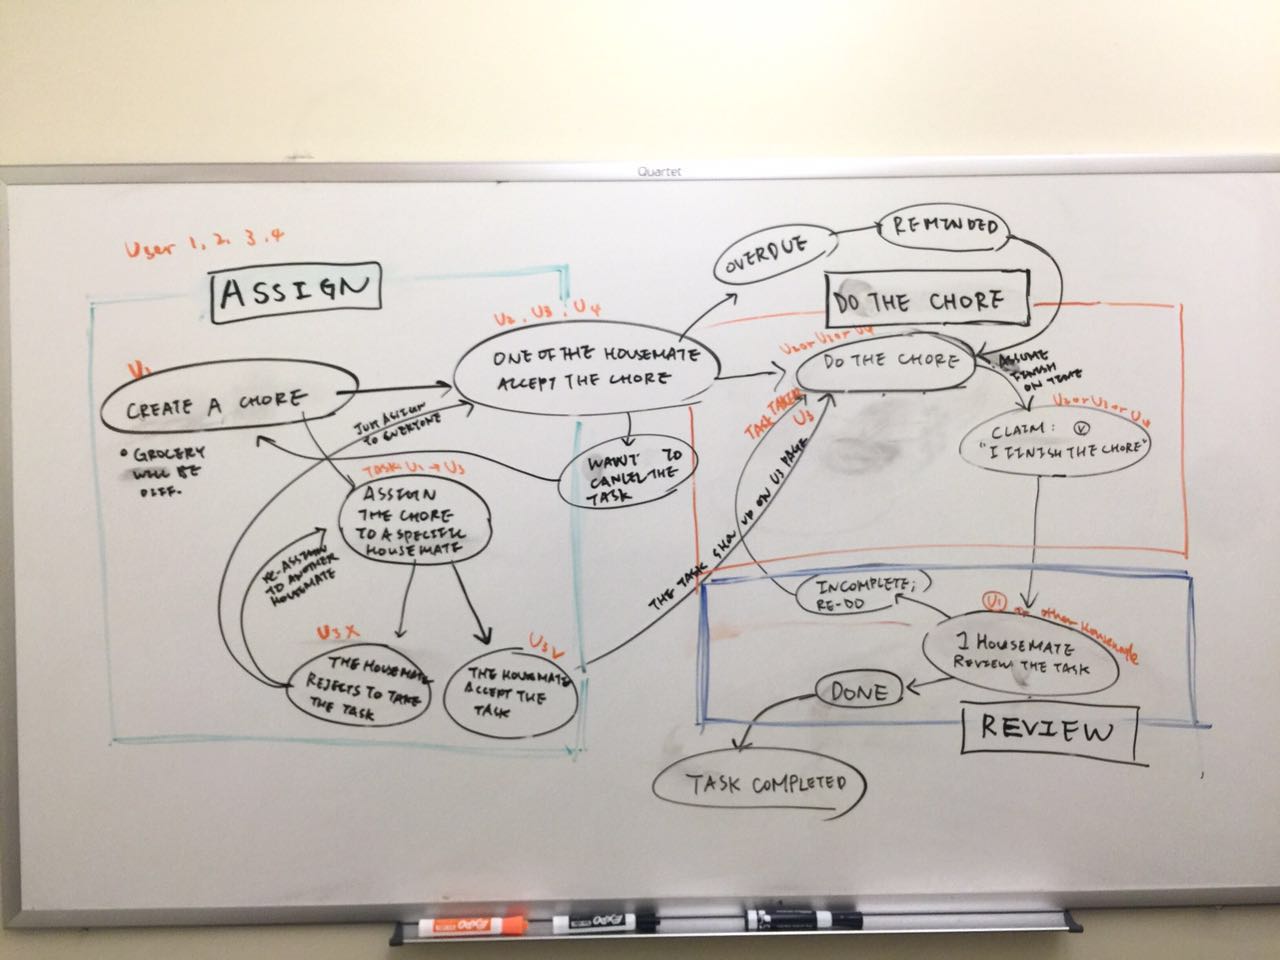 Quartet
User 1, 2, 3, 4
ASSIGN
U1
CREATE A CHORE
• GROCERY
WILL BE
DIFF.
U2, U3, U4
ONE OF THE HOUSEMATE
ACCEPT THE CHORE
JUST ASSIGN
TO EVERYONE
WANT TO
CANCEL THE
TASK
TASK U1 → U3
ASSIGN
THE CHORE
TO A SPECIFIC
HOUSEMATE
RE-ASSIGN
TO ANOTHER
HOUSEMATE
U3 X
THE HOUSEMATE
REJECTS TO TAKE
THE TASK
U3 V
THE HOUSEMATE
ACCEPT THE
TASK
THE TASK SHOW UP ON U3 PAGE
OVERDUE
REMINDED
DO THE CHORE
U2 or U3 or U4
DO THE CHORE
TASK TAKER
U3
ASSUME
FINISH
ON TIME
U2 or U3 or U4
CLAIM: V
"I FINISH THE CHORE"
INCOMPLETE;
RE-DO
U1 or other housemate
1 HOUSEMATE
REVIEW THE TASK
DONE
REVIEW
TASK COMPLETED
EXPO
EXPO